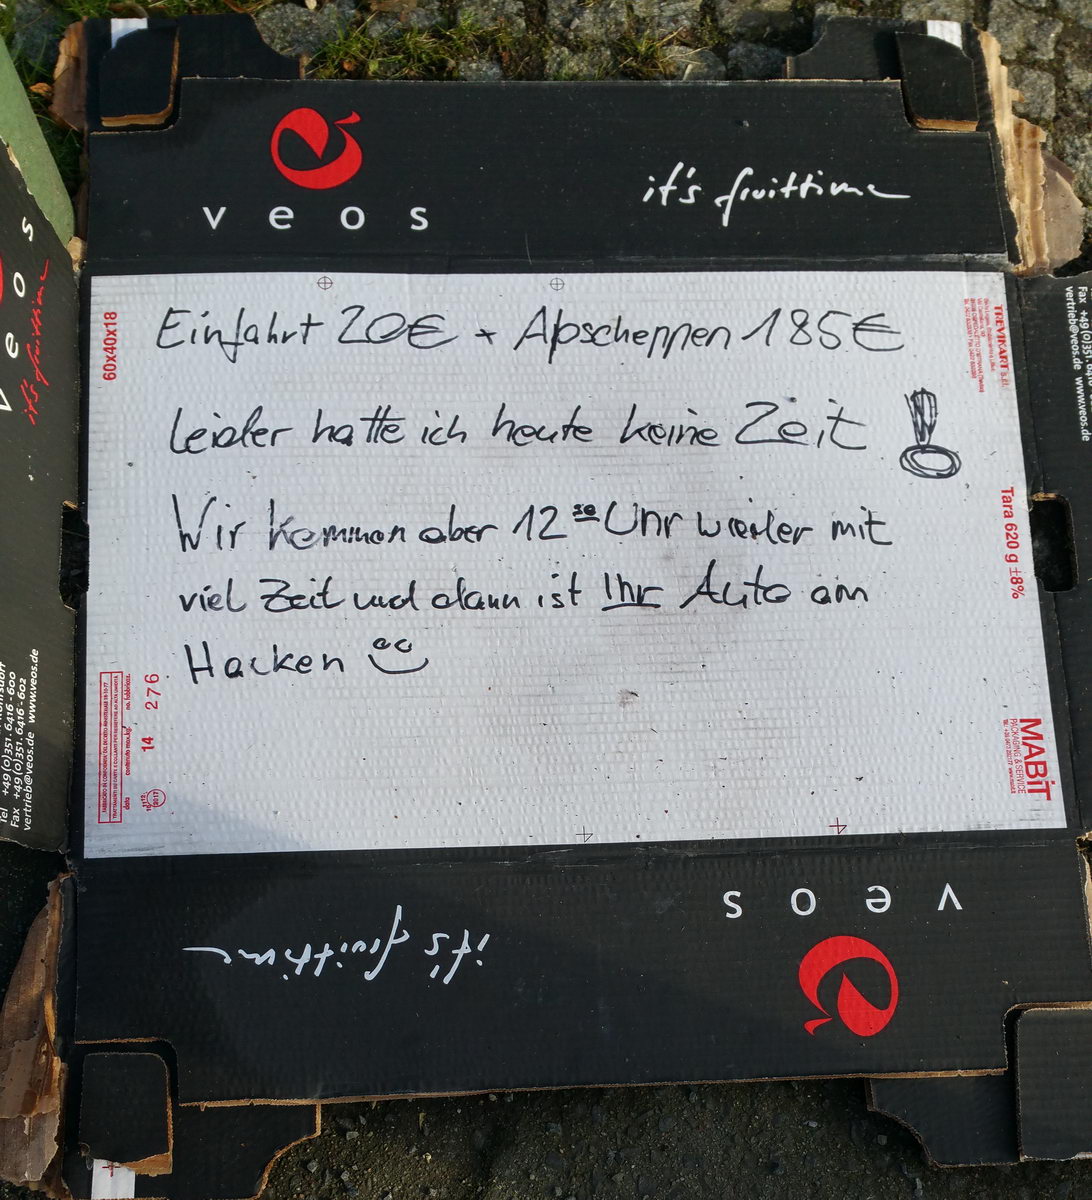 veos
it's fruittime
60x40x18
TREVIKART s.r.l.
Einfahrt 20€ + Abscheppen 185€
Leider hatte ich heute keine Zeit !
Wir kommen aber 12 30 Uhr wieder mit
viel Zeit und dann ist Ihr Auto am
Hacken
Tara 620 g ±8%
276
14
2017
MABiT
PACKAGING & SERVICE
veos
it's fruittime
veos
it's fruittime
Tel +49(0)351. 6416 - 600
Fax +49(0)351. 6416 - 602
vertrieb@veos.de www.veos.de
Fax +49(0)351. 641
vertrieb@veos.de www.veos.de